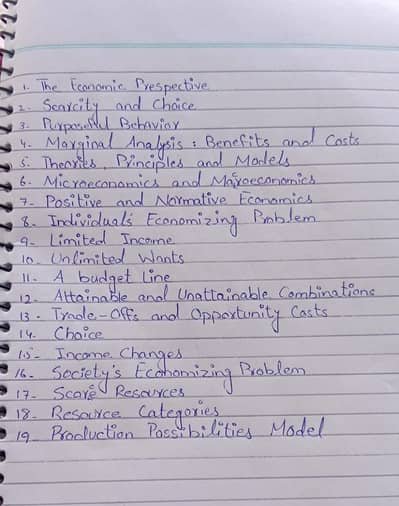 1. The Economic Prespective
2. Scarcity and Choice
3. Purposeful Behavior
4. Marginal Analysis : Benefits and Costs
5. Theories, Principles and Models
6. Microeconomics and Macroeconomics
7- Positive and Normative Economics
8- Individual's Economizing Problem
9- Limited Income
10- Unlimited Wants
11- A budget Line
12. Attainable and Unattainable Combinations
13- Trade-Offs and Opportunity Costs
14. Choice
15- Income Changes
16- Society's Economizing Problem
17- Scare Resources
18- Resource Categories
19- Production Possibilities Model